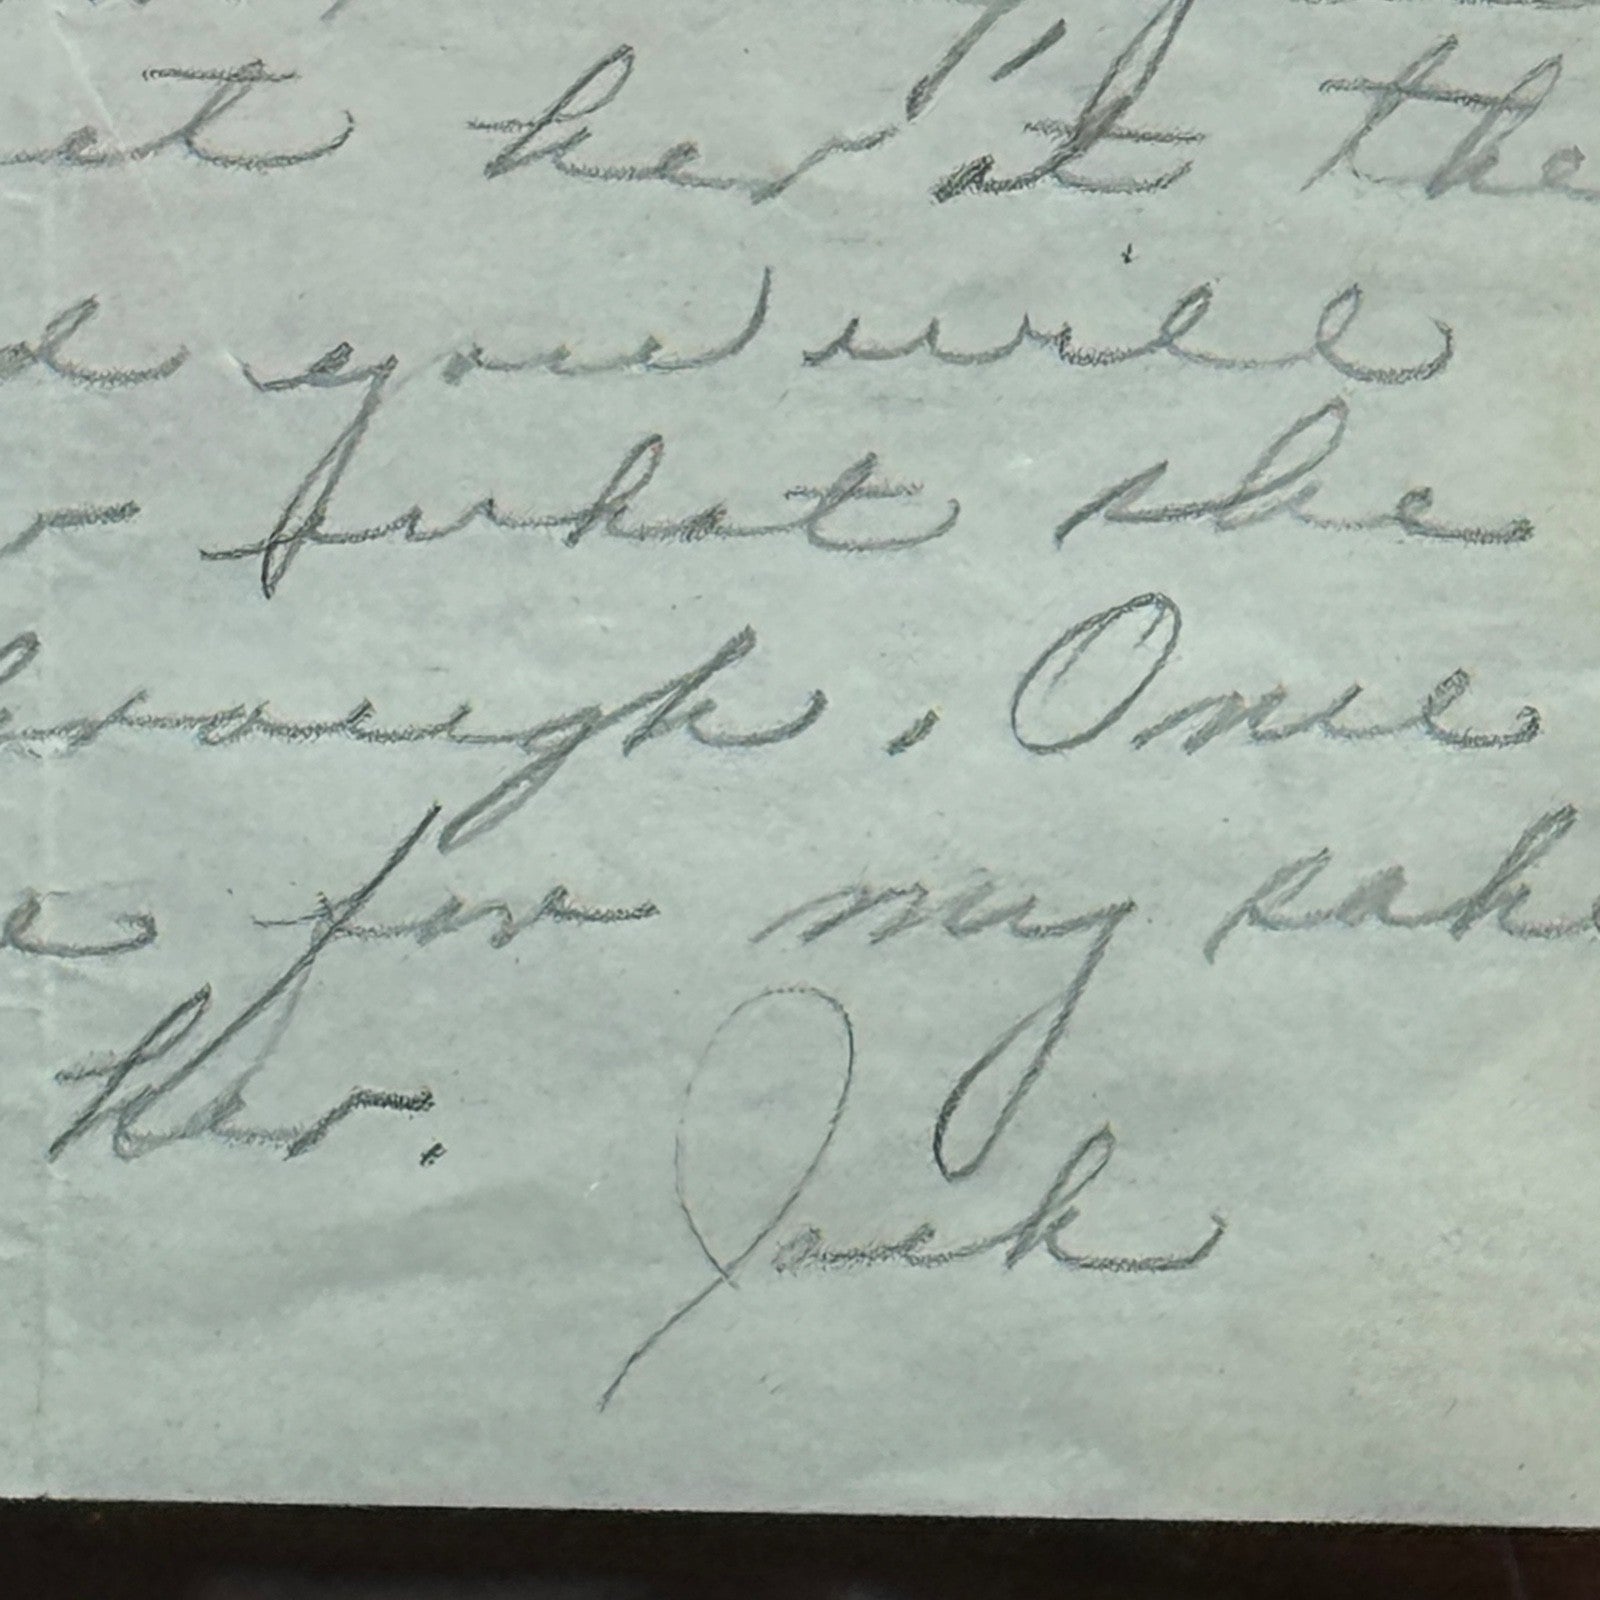 her it the
you will
what she
through. Once
for my sake
her.
Jack